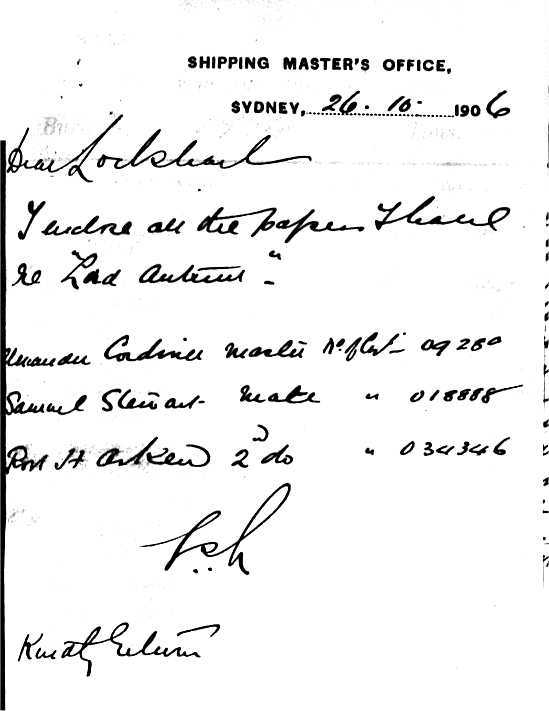 SHIPPING MASTER'S OFFICE,
SYDNEY, 26. 10. 1906
Dear Lockhart
I enclose all the papers I have
re "Lord Antrim" -
Cordiner Master No. of Cert - 09280
Samuel Stewart - Mate " 018888
Robt H Aiken 2nd do " 034346
Kindly Return